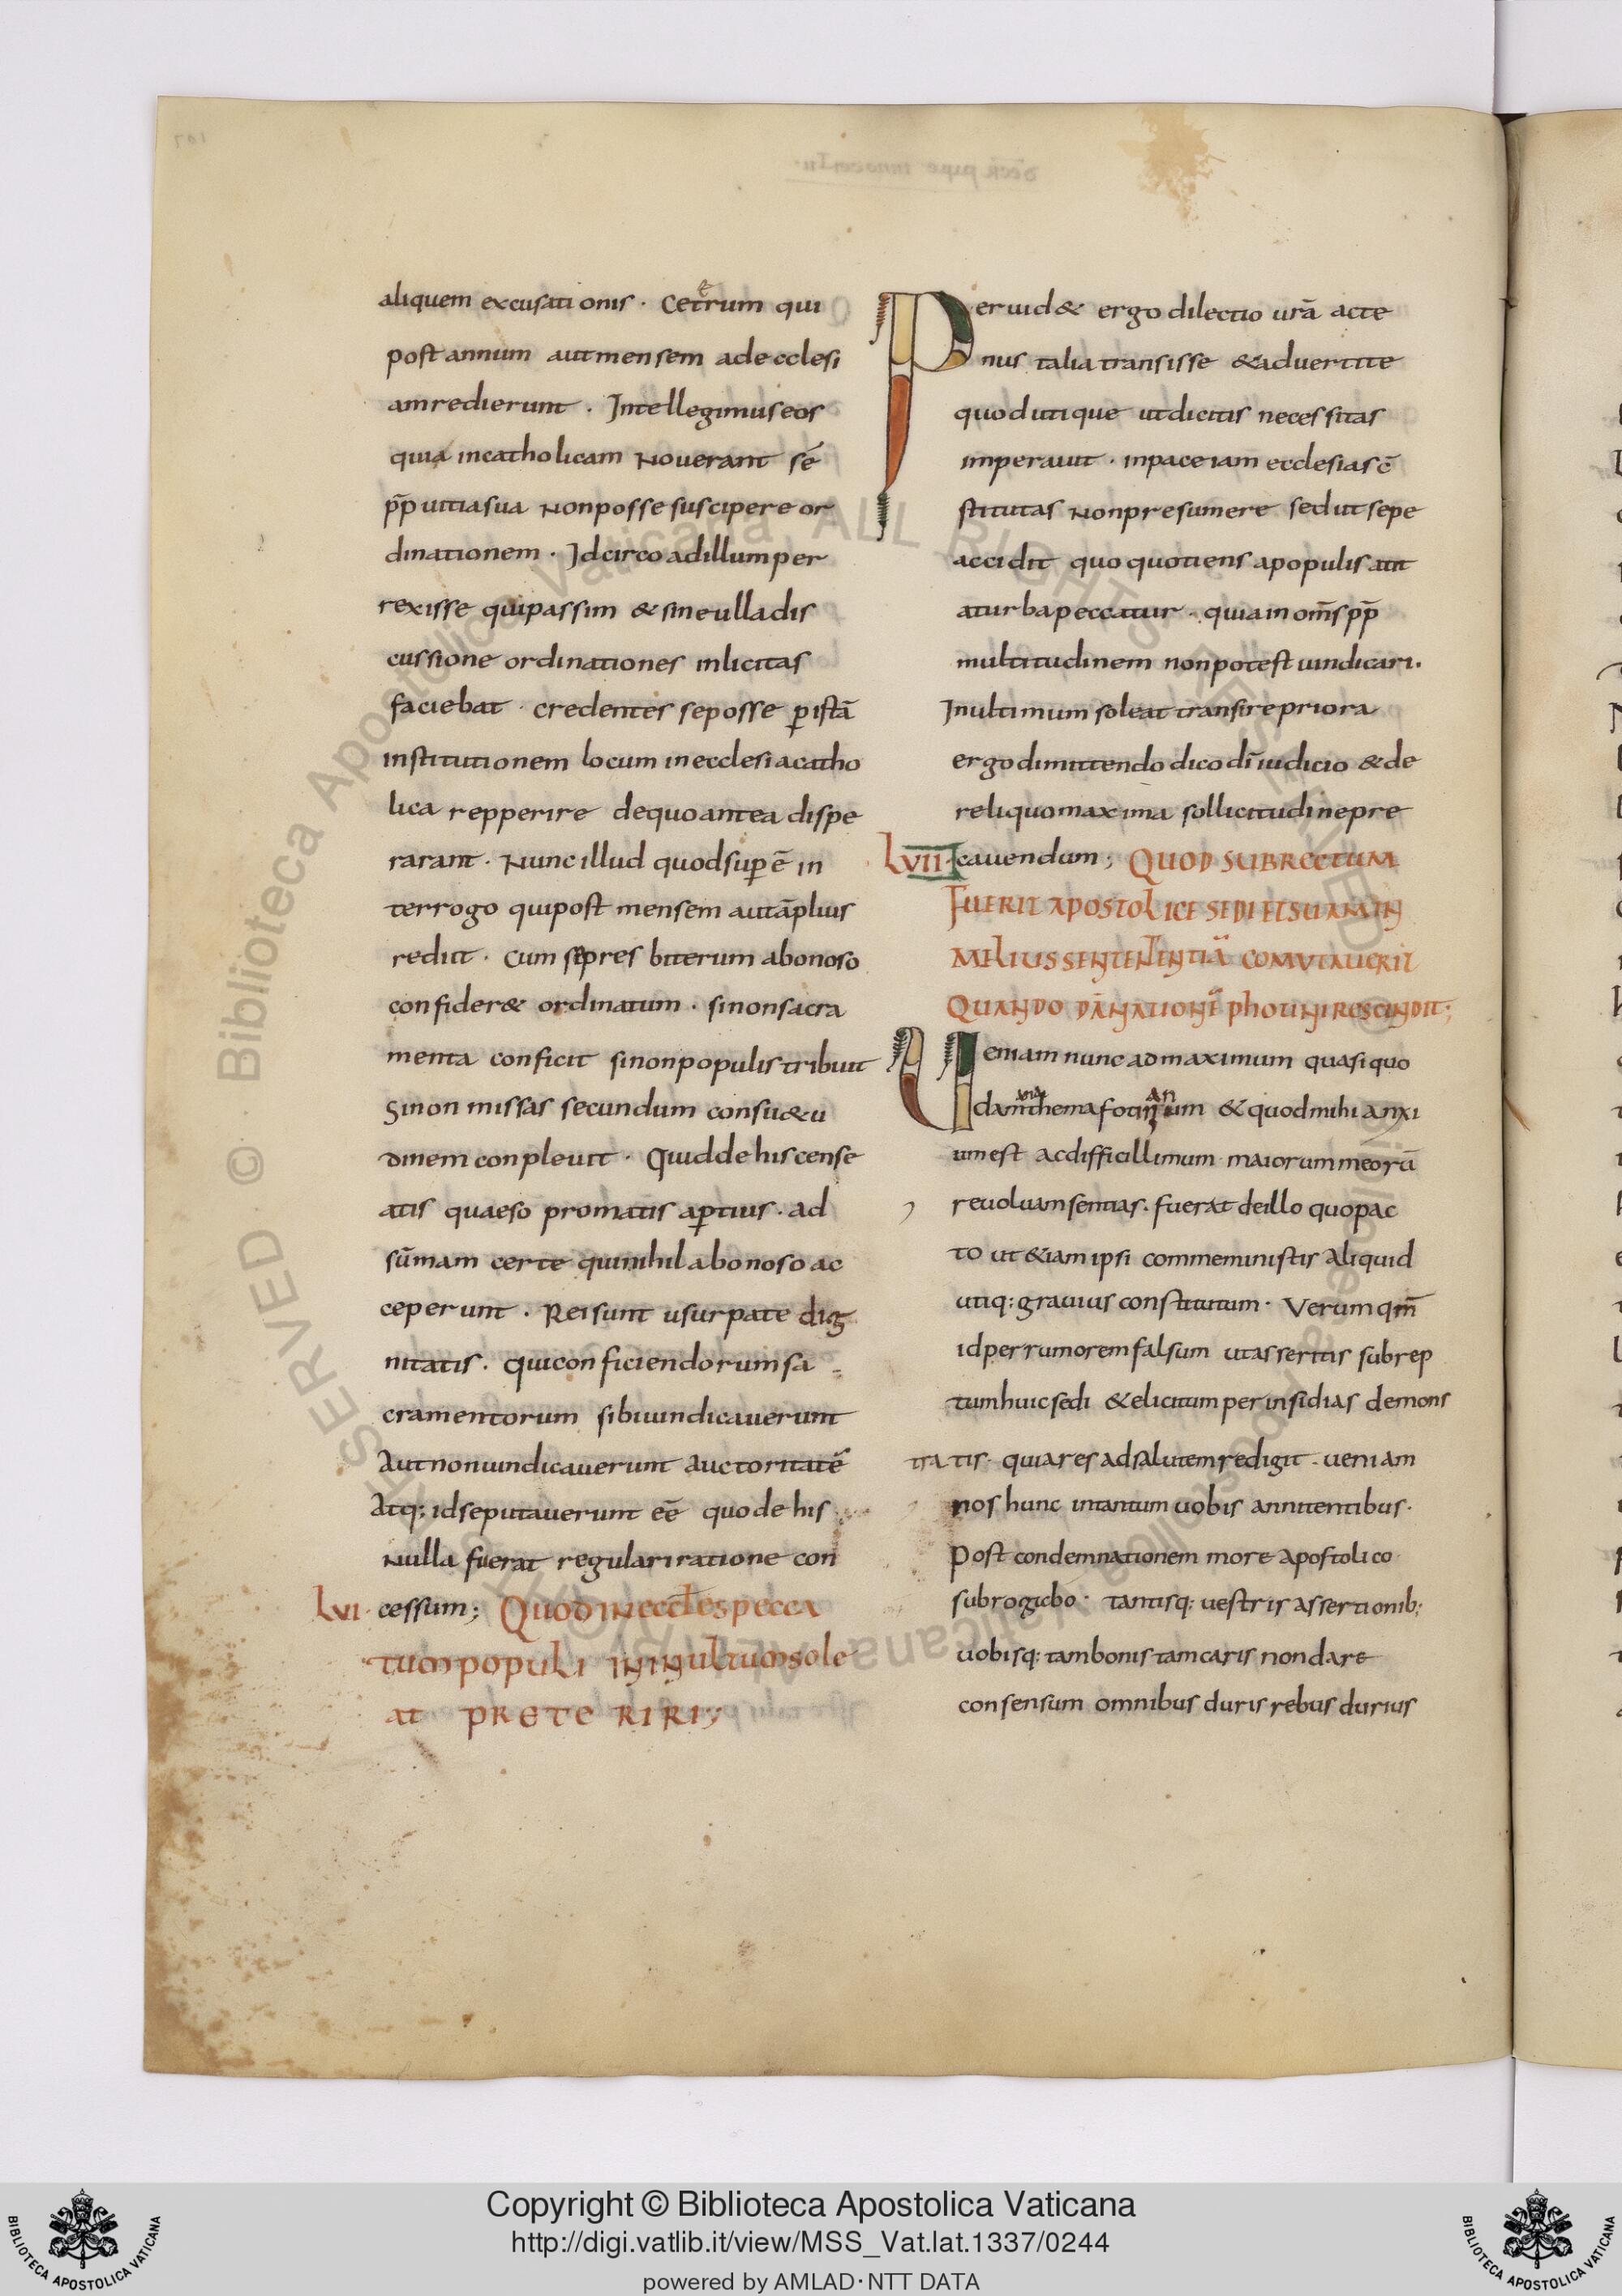 aliquem excusationis · Cetrum qui
e
post annum aut mensem ad ecclesi
am redierunt · Intellegimus eos
quia in catholicam Nouerant sē
pp̄ uitia sua Non posse suscipere or
dinationem · Idcirco ad illum per
rexisse qui passim & sine ulla dis
cussione ordinationes inlicitas
faciebat · credentes se posse ꝑ istā
institutionem locum in ecclesia catho
lica repperire de quo antea dispe
rarant · Nunc illud quod suꝑ ē in
terrogo qui post mensem aut āplius
rediit · Cum se pres biterum a bonoso
confider& ordinatum · si non sacra
menta conficit si non populis tribuit
Si non missas secundum consu&u
dinem conpleuit · Quid de his cense
atis quaeso promatis aꝑtius · ad
sūmam certe qui nihil a bonoso ac
ceperunt · Rei sunt usurpate dig
nitatis · qui conficiendorum sa
cramentorum sibi uindicauerunt
Aut non uindicauerunt auctoritatē
Atq; id se putauerunt eē quod e his
Nulla fuerat regulari ratione con
LVI · cessum; Quod in eccles pecca
tum populi in inultum sole
at PRETERIRI;
Peruid& ergo dilectio urā acte
nus talia transisse & aduertite
quod utique ut dicitis necessitas
imperauit · in pace iam ecclesias c̄
stitutas Non presumere sed ut sepe
accidit quo quotiens a populis aut
a turba peccatur · quia in om̄s pp̄
multitudinem non potest uindicari ·
Inultimum soleat transire priora
ergo dimittendo dico dī iudicio & de
reliquo maxima sollicitudine pre
LVII · cauendum; QUOD SUBRECTUM
FUERIT APOSTOLICE SEDI ET SUAM IN
MELIUS SENTENTENTIĀ COMUTAUERIT
QUANDO DĀNATIONĒ PHOTINI RESCINDIT;
Ueniam nunc ad maximum quasi quo
an
dam thema fotinum & quod mihi anxi
um est ac difficillimum maiorum meorū
reuoluam sentias · fuerat de illo quo pac
to ut &iam ipsi commeministis aliquid
utiq: grauius constitutum · Verum qm̄
id per rumorem falsum ut asseritis subrep
tum huic sedi & elicitum per insidias demons
tratis · quia res ad salutem redigit · ueniam
nos hunc in tantum uobis annitentibus ·
Post condemnationem more apostolico
subrogicbo · tantisq: uestris assertionib;
uobisq: tam bonis tam caris non dare
consensum omnibus duris rebus durius
Copyright © Biblioteca Apostolica Vaticana
http://digi.vatlib.it/view/MSS_Vat.lat.1337/0244
powered by AMLAD·NTT DATA
BIBLIOTECA APOSTOLICA VATICANA
BIBLIOTECA APOSTOLICA VATICANA